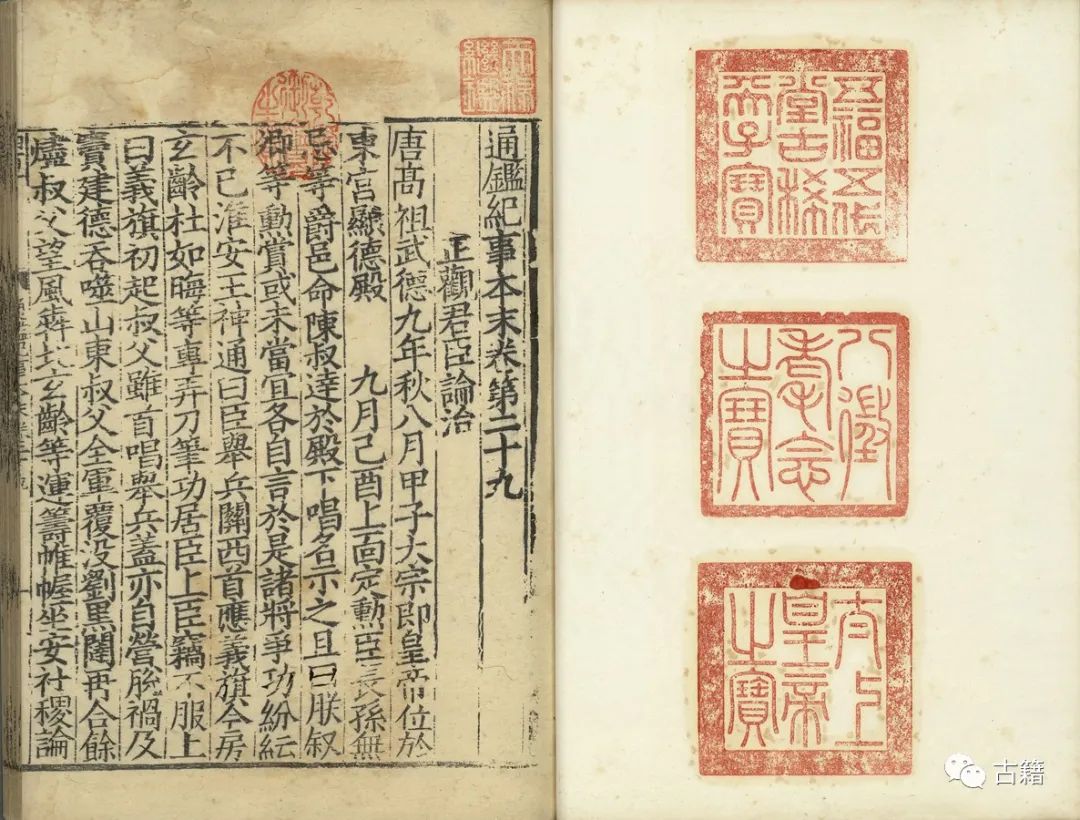 五福五代
堂古稀
天子寶
八徵
耄念
之寶
太上
皇帝
之寶
天祿
繼鑑
乾隆
御覽
之寶
通鑑紀事本末卷第二十九
正觀君臣論治
唐髙祖武德九年秋八月甲子大宗即皇帝位於
東宮顯德殿　九月己酉上面定勳臣長孫無
忌等爵邑命陳叔達於殿下唱名示之且曰朕叙
卿等勳賞或未當宜各自言於是諸將爭功紛紜
不已淮安王神通曰臣舉兵關西首應義旗今房
玄齡杜如晦等專弄刀筆功居臣上臣竊不服上
曰義旗初起叔父雖首唱舉兵蓋亦自營脫禍及
竇建德吞噬山東叔父全軍覆没劉黑闥再合餘
燼叔父望風犇北玄齡等運籌帷幄坐安社稷論
古籍